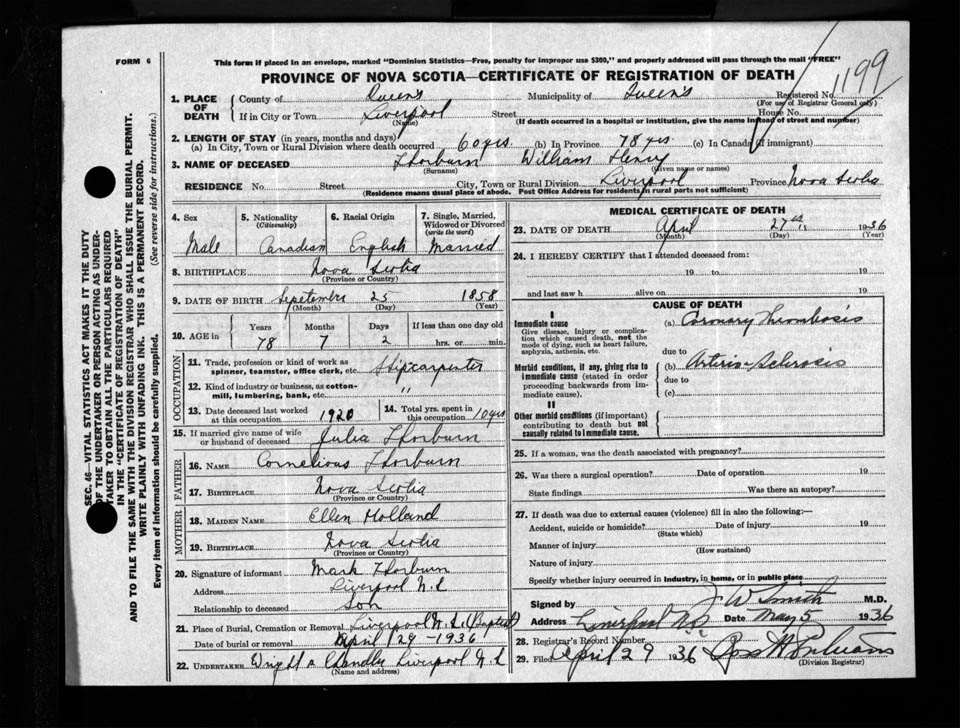 FORM 6
This form if placed in an envelope, marked "Dominion Statistics—Free, penalty for improper use $300," and properly addressed will pass through the mail "FREE"
PROVINCE OF NOVA SCOTIA—CERTIFICATE OF REGISTRATION OF DEATH
1199
Registered No.
(For use of Registrar General only)
1. PLACE OF DEATH
County of Queens Municipality of Queens
If in City or Town Liverpool Street House No.
(Name) (If death occurred in a hospital or institution, give the name instead of street and number)
2. LENGTH OF STAY (in years, months and days)
(a) In City, Town or Rural Division where death occurred 60 yrs. (b) In Province 78 yrs (c) In Canada (if immigrant)
3. NAME OF DECEASED Thorburn William Henry
(Surname) (Given name or names)
RESIDENCE No. Street City, Town or Rural Division Liverpool Province Nova Scotia
(Residence means usual place of abode. Post Office Address for residents in rural parts not sufficient)
4. Sex Male
5. Nationality (Citizenship) Canadian
6. Racial Origin English
7. Single, Married, Widowed or Divorced (write the word) Married
8. BIRTHPLACE Nova Scotia
(Province or Country)
9. DATE OF BIRTH September 25 1858
(Month) (Day) (Year)
10. AGE in Years Months Days If less than one day old
78 7 2 hrs. or min.
OCCUPATION
11. Trade, profession or kind of work as spinner, teamster, office clerk, etc. Shipcarpenter
12. Kind of industry or business, as cotton-mill, lumbering, bank, etc. "
13. Date deceased last worked at this occupation 1920
14. Total yrs. spent in this occupation 10 yrs
15. If married give name of wife or husband of deceased Julia Thorburn
FATHER
16. NAME Cornelious Thorburn
17. BIRTHPLACE Nova Scotia
(Province or Country)
MOTHER
18. MAIDEN NAME Ellen Holland
19. BIRTHPLACE Nova Scotia
(Province or Country)
20. Signature of informant Mark Thorburn
Address Liverpool N.S
Relationship to deceased Son
21. Place of Burial, Cremation or Removal Liverpool N.S (Baptist)
Date of burial or removal April 29 - 1936
22. UNDERTAKER Wright & Chandler Liverpool N.S
(Name and address)
MEDICAL CERTIFICATE OF DEATH
23. DATE OF DEATH April 27th 1936
(Month) (Day) (Year)
24. I HEREBY CERTIFY that I attended deceased from:
19 to 19
and last saw h alive on 19
CAUSE OF DEATH
I
Immediate cause
Give disease, injury or complication which caused death, not the mode of dying, such as heart failure, asphyxia, asthenia, etc.
(a) Coronary Thrombosis
due to
Morbid conditions, if any, giving rise to immediate cause (stated in order proceeding backwards from immediate cause).
(b) Arterio-Sclerosis
due to
(c)
II
Other morbid conditions (if important) contributing to death but not causally related to immediate cause.
25. If a woman, was the death associated with pregnancy?
26. Was there a surgical operation? Date of operation 19
State findings Was there an autopsy?
27. If death was due to external causes (violence) fill in also the following:—
Accident, suicide or homicide? Date of injury 19
(State which)
Manner of injury
(How sustained)
Nature of injury
Specify whether injury occurred in industry, in home, or in public place
Signed by J W Smith M.D.
Address Liverpool N.S. Date May 5 1936
28. Registrar's Record Number
29. Filed April 29 1936
(Division Registrar)
SEC. 46—VITAL STATISTICS ACT MAKES IT THE DUTY
OF THE UNDERTAKER OR PERSON ACTING AS UNDER-
TAKER TO OBTAIN ALL THE PARTICULARS REQUIRED
IN THE "CERTIFICATE OF REGISTRATION OF DEATH"
AND TO FILE THE SAME WITH THE DIVISION REGISTRAR WHO SHALL ISSUE THE BURIAL PERMIT.
WRITE PLAINLY WITH UNFADING INK. THIS IS A PERMANENT RECORD.
Every item of information should be carefully supplied. (See reverse side for instructions.)